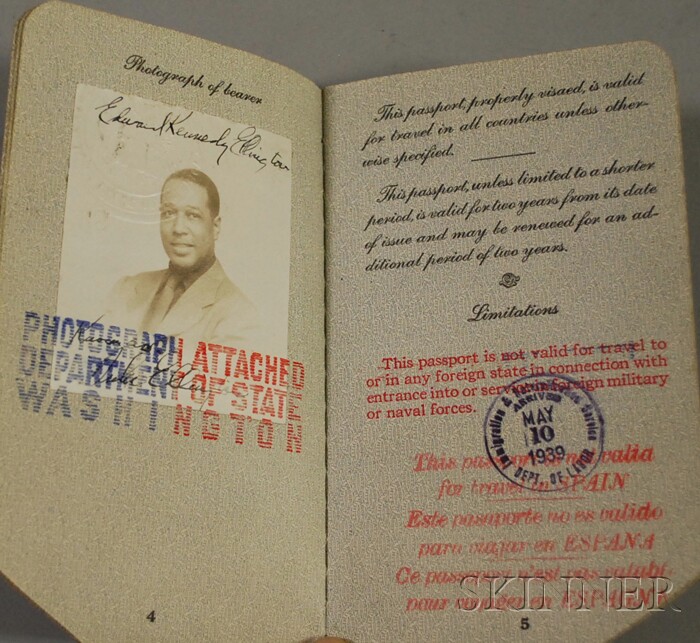 Photograph of bearer
Edward Kennedy Ellington
PHOTOGRAPH ATTACHED
DEPARTMENT OF STATE
WASHINGTON
4
This passport, properly visaed, is valid
for travel in all countries unless other-
wise specified.
This passport, unless limited to a shorter
period, is valid for two years from its date
of issue and may be renewed for an ad-
ditional period of two years.
Limitations
This passport is not valid for travel to
or in any foreign state in connection with
entrance into or service in foreign military
or naval forces.
Immigration & Naturalization Service
ARRIVED
MAY
10
1939
DEPT. OF LABOR
This passport is not valid
for travel in SPAIN
Este pasaporte no es valido
para viajar en ESPANA
Ce passeport n'est pas valable
pour voyager en ESPAGNE
5
SKINNER